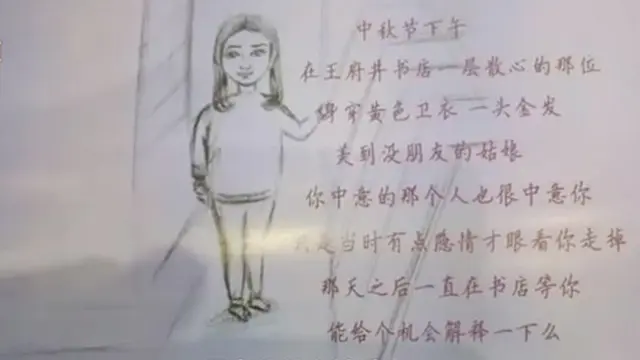 中秋节下午
在王府井书店一层散心的那位
穿黄色卫衣 一头金发
美到没朋友的姑娘
你中意的那个人也很中意你
当时有点隐情才眼看你走掉
那天之后一直在书店等你
能给个机会解释一下么